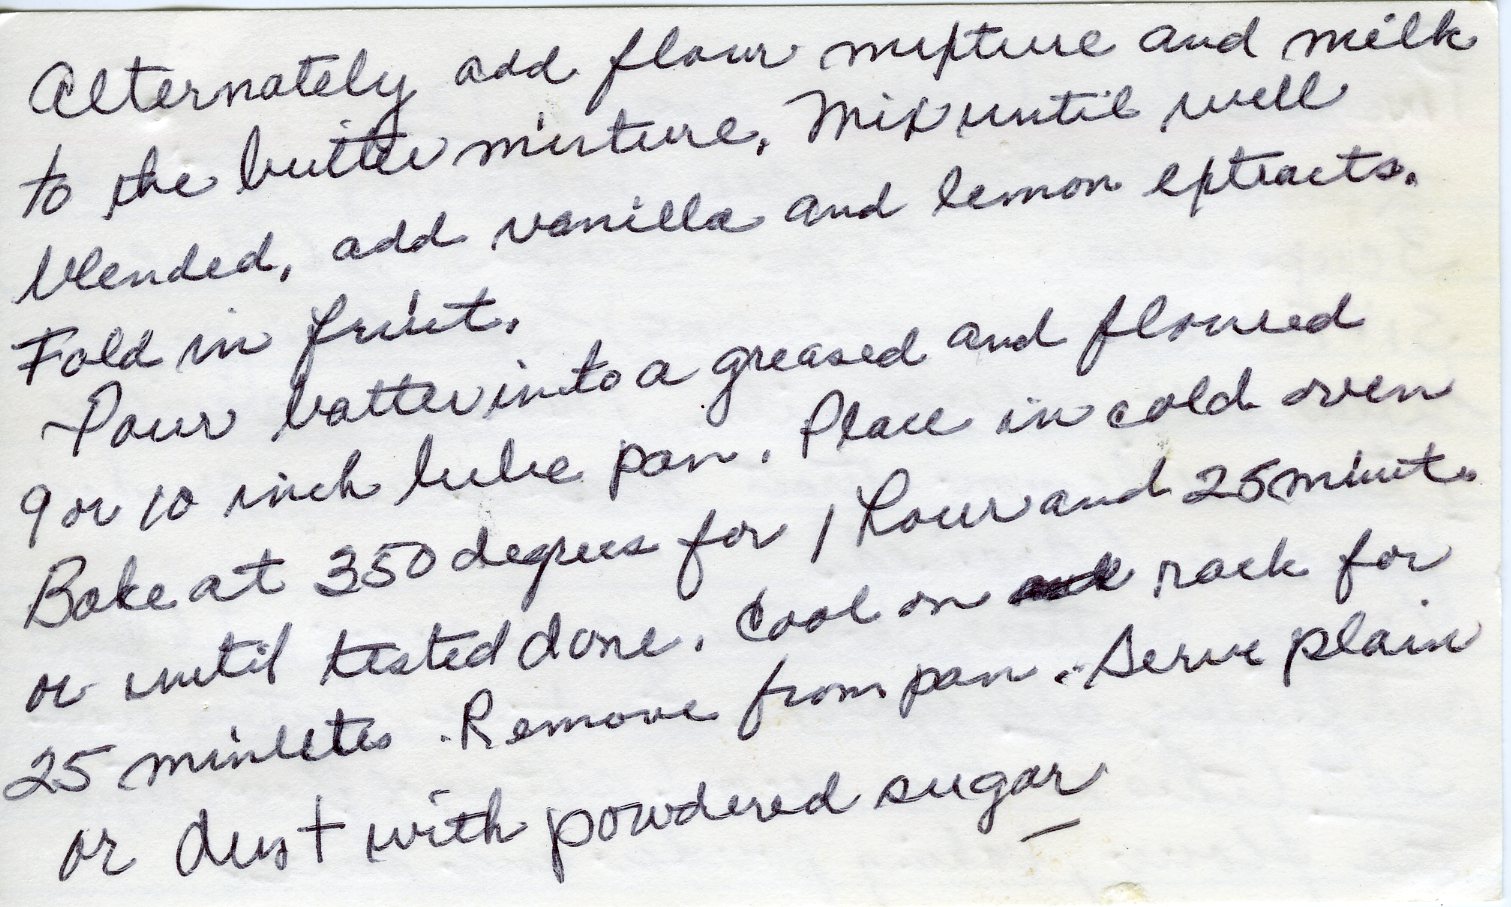 Alternately add flour mixture and milk
to the butter mixture. Mix until well
blended, add vanilla and lemon extracts.
Fold in fruit.
Pour batter into a greased and floured
9 or 10 inch tube pan. Place in cold oven
Bake at 350 degrees for 1 hour and 25 minut.
or until tested done. Cool on rack for
25 minutes. Remove from pan. Serve plain
or dust with powdered sugar